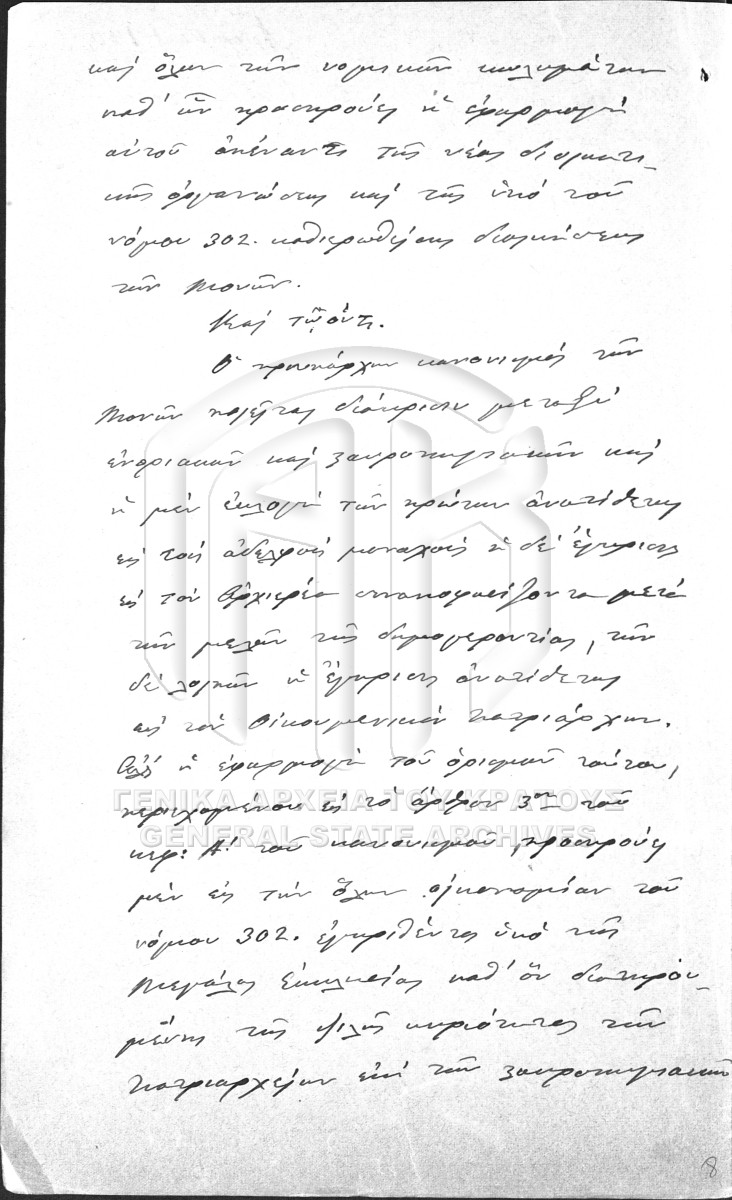 καὶ ὅλων τῶν νομικῶν κωλυμάτων
καθ' ὧν προσκρούει ἡ ἐφαρμογὴ
αὐτοῦ ἀπέναντι τῆς νέας διοικητι-
κῆς ὀργανώσεως καὶ τῆς ὑπὸ τοῦ
νόμου 302. καθιερωθείσης διοικήσεως
τῶν Μονῶν.
Καὶ τῷ ὄντι.
Ὁ προϋπάρχων κανονισμὸς τῶν
Μονῶν ποιεῖται διάκρισιν μεταξὺ
ἐνοριακῶν καὶ σταυροπηγιακῶν καὶ
ἡ μὲν ἐκλογὴ τῶν πρώτων ἀνατίθεται
εἰς τοὺς ἀδελφοὺς μοναχοὺς ἡ δὲ ἔγκρισις
εἰς τὸν Ἀρχιερέα συναποφασίζοντα μετὰ
τῶν μελῶν τῆς δημογεροντίας, τῶν
δὲ λοιπῶν ἡ ἔγκρισις ἀνατίθεται
εἰς τὸν Οἰκουμενικὸν Πατριάρχην.
Ἀλλ' ἡ ἐφαρμογὴ τοῦ ὁρισμοῦ τούτου,
περιεχομένου εἰς τὸ ἄρθρον 3ον τοῦ
κεφ: Α! τοῦ κανονισμοῦ, προσκρούει
μὲν εἰς τὴν ὅλην οἰκονομίαν τοῦ
νόμου 302. ἐγκριθέντος ὑπὸ τῆς
Μεγάλης Ἐκκλησίας καθ' ὃν διατηρου-
μένης τῆς ψιλῆς κυριότητος τῶν
Πατριαρχείων ἐπὶ τῶν σταυροπηγιακῶν
ΓΕΝΙΚΑ ΑΡΧΕΙΑ ΤΟΥ ΚΡΑΤΟΥΣ
GENERAL STATE ARCHIVES
8